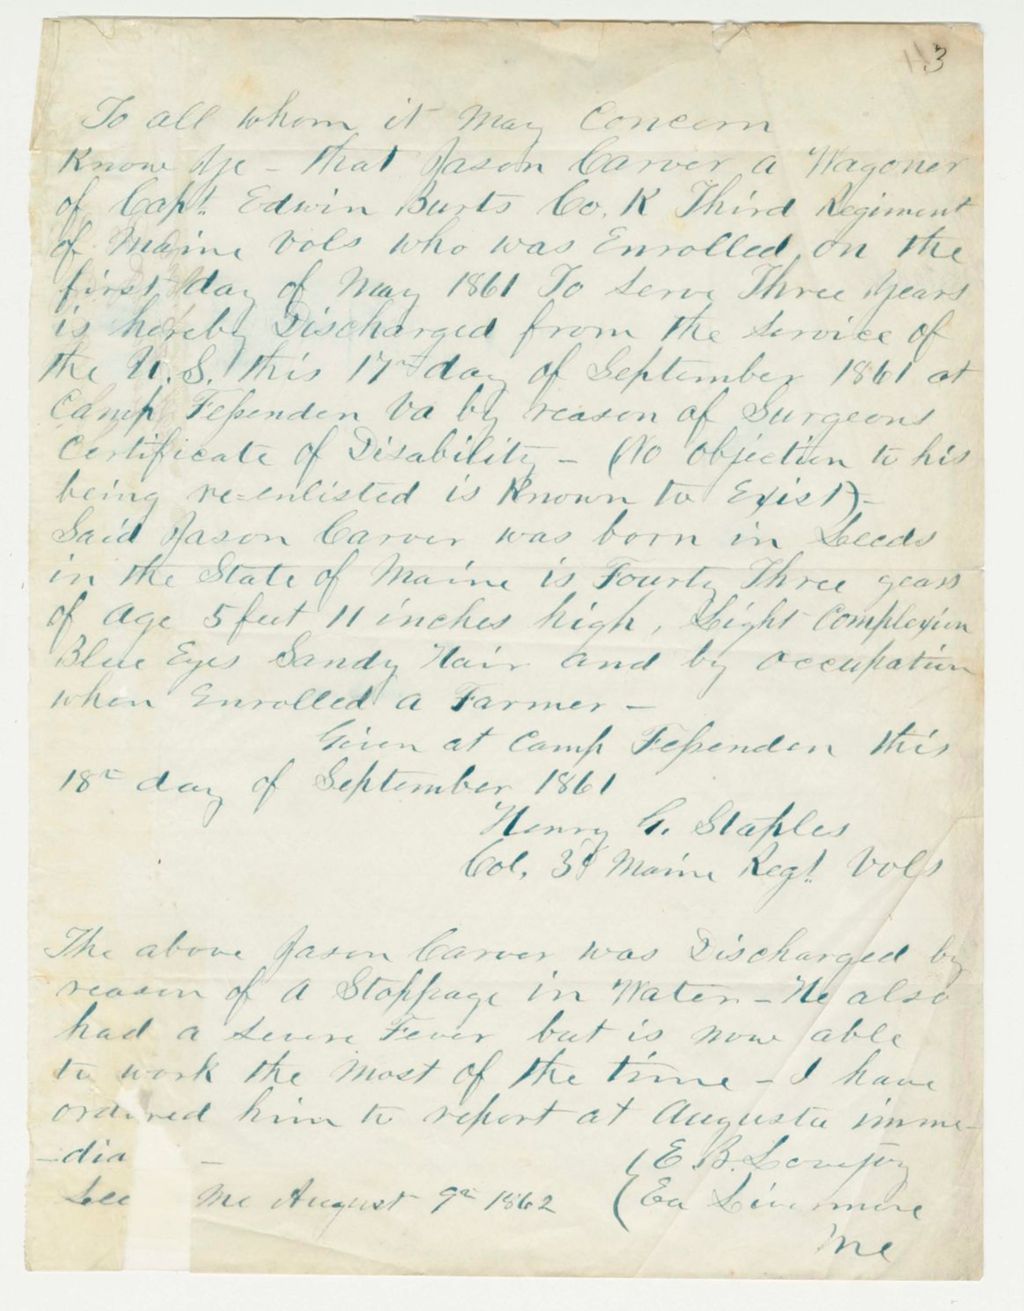 113
To all whom it May Concern
Know Ye - that Jason Carver a Wagoner
of Capt. Edwin Burts Co. K Third Regiment
of Maine Vols who was Enrolled on the
first day of May 1861 To Serve Three Years
is hereby Discharged from the Service of
the U.S. this 17th day of September 1861 at
Camp Feßenden Va by reason of Surgeons
Certificate of Disability - (No objection to his
being re=enlisted is Known to Exist) -
Said Jason Carver was born in Leeds
in the State of Maine is Fourty Three years
of Age 5 feet 11 inches high, Light Complexion
Blue Eyes Sandy Hair and by occupation
when Enrolled a Farmer -
Given at Camp Feßenden this
18th day of September 1861
Henry G. Staples
Col. 3d Maine Regt. Vols
The above Jason Carver was Discharged by
reason of A Stoppage in Water - He also
had a Severe Fever but is now able
to work the Most of the time - I have
ordered him to report at Augusta imme-
-dia -
Lee Me August 9th 1862
(E. B. Lovejoy
(Ea Livermore
Me